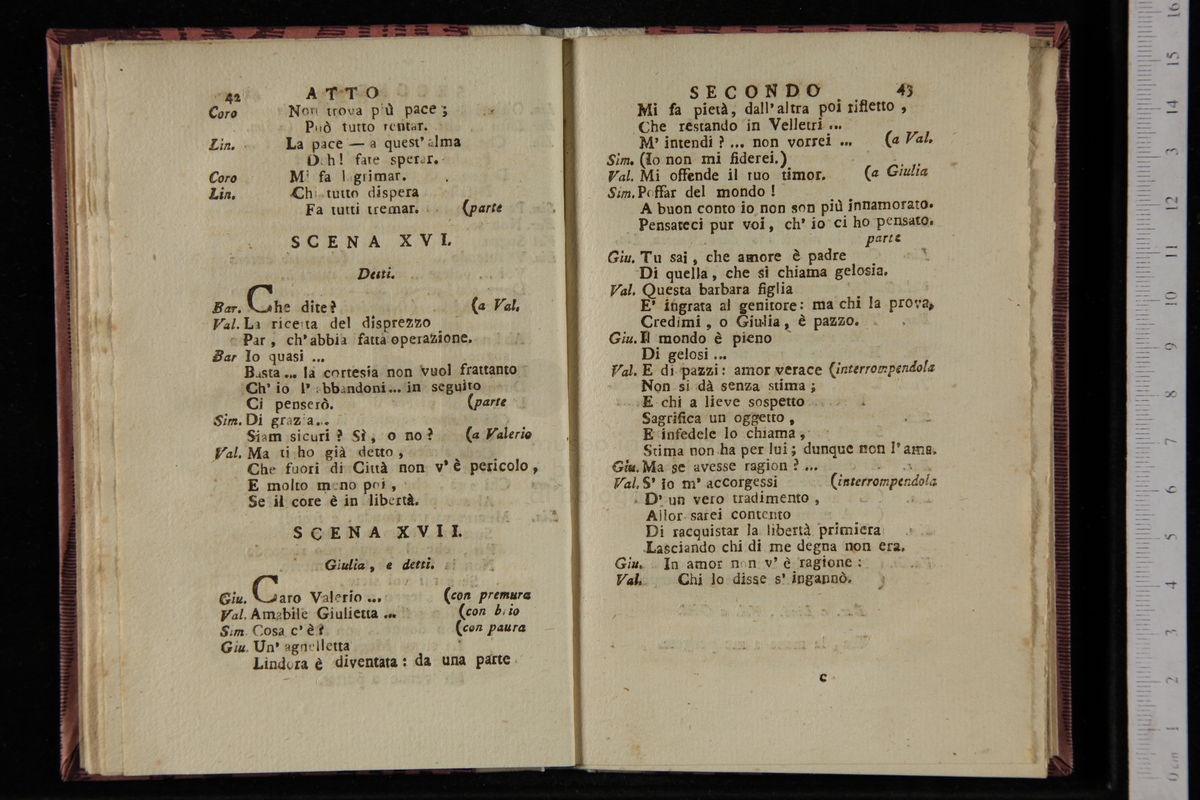 42 ATTO
Coro Non trova più pace;
Può tutto tentar.
Lin. La pace — a quest' alma
Deh! fate sperar.
Coro Mi fa lagrimar.
Lin. Chi tutto dispera
Fa tutti tremar. (parte
SCENA XVI.
Detti.
Bar. Che dite? (a Val.
Val. La ricetta del disprezzo
Par, ch'abbia fatta operazione.
Bar Io quasi ...
Basta ... la cortesia non vuol frattanto
Ch' io l' abbandoni ... in seguito
Ci penserò. (parte
Sim. Di grazia...
Siam sicuri? Sì, o no? (a Valerio
Val. Ma ti ho già detto,
Che fuori di Città non v' è pericolo,
E molto meno poi,
Se il core è in libertà.
SCENA XVII.
Giulia, e detti.
Giu. Caro Valerio ... (con premura
Val. Amabile Giulietta ... (con brio
Sim. Cosa c' è? (con paura
Giu. Un' agnelletta
Lindora è diventata: da una parte
SECONDO 43
Mi fa pietà, dall' altra poi rifletto,
Che restando in Velletri ...
M' intendi? ... non vorrei ... (a Val.
Sim. (Io non mi fiderei.)
Val. Mi offende il tuo timor. (a Giulia
Sim. Poffar del mondo!
A buon conto io non son più innamorato.
Pensateci pur voi, ch' io ci ho pensato.
parte
Giu. Tu sai, che amore è padre
Di quella, che si chiama gelosia.
Val. Questa barbara figlia
E' ingrata al genitore: ma chi la prova,
Credimi, o Giulia, è pazzo.
Giu. Il mondo è pieno
Di gelosi ...
Val. E di pazzi: amor verace (interrompendola
Non si dà senza stima;
E chi a lieve sospetto
Sagrifica un oggetto,
E infedele lo chiama,
Stima non ha per lui; dunque non l' ama.
Giu. Ma se avesse ragion? ...
Val. S' io m' accorgessi (interrompendola
D' un vero tradimento,
Allor sarei contento
Di racquistar la libertà primiera
Lasciando chi di me degna non era.
Giu. In amor non v' è ragione:
Val. Chi lo disse s' ingannò.
C